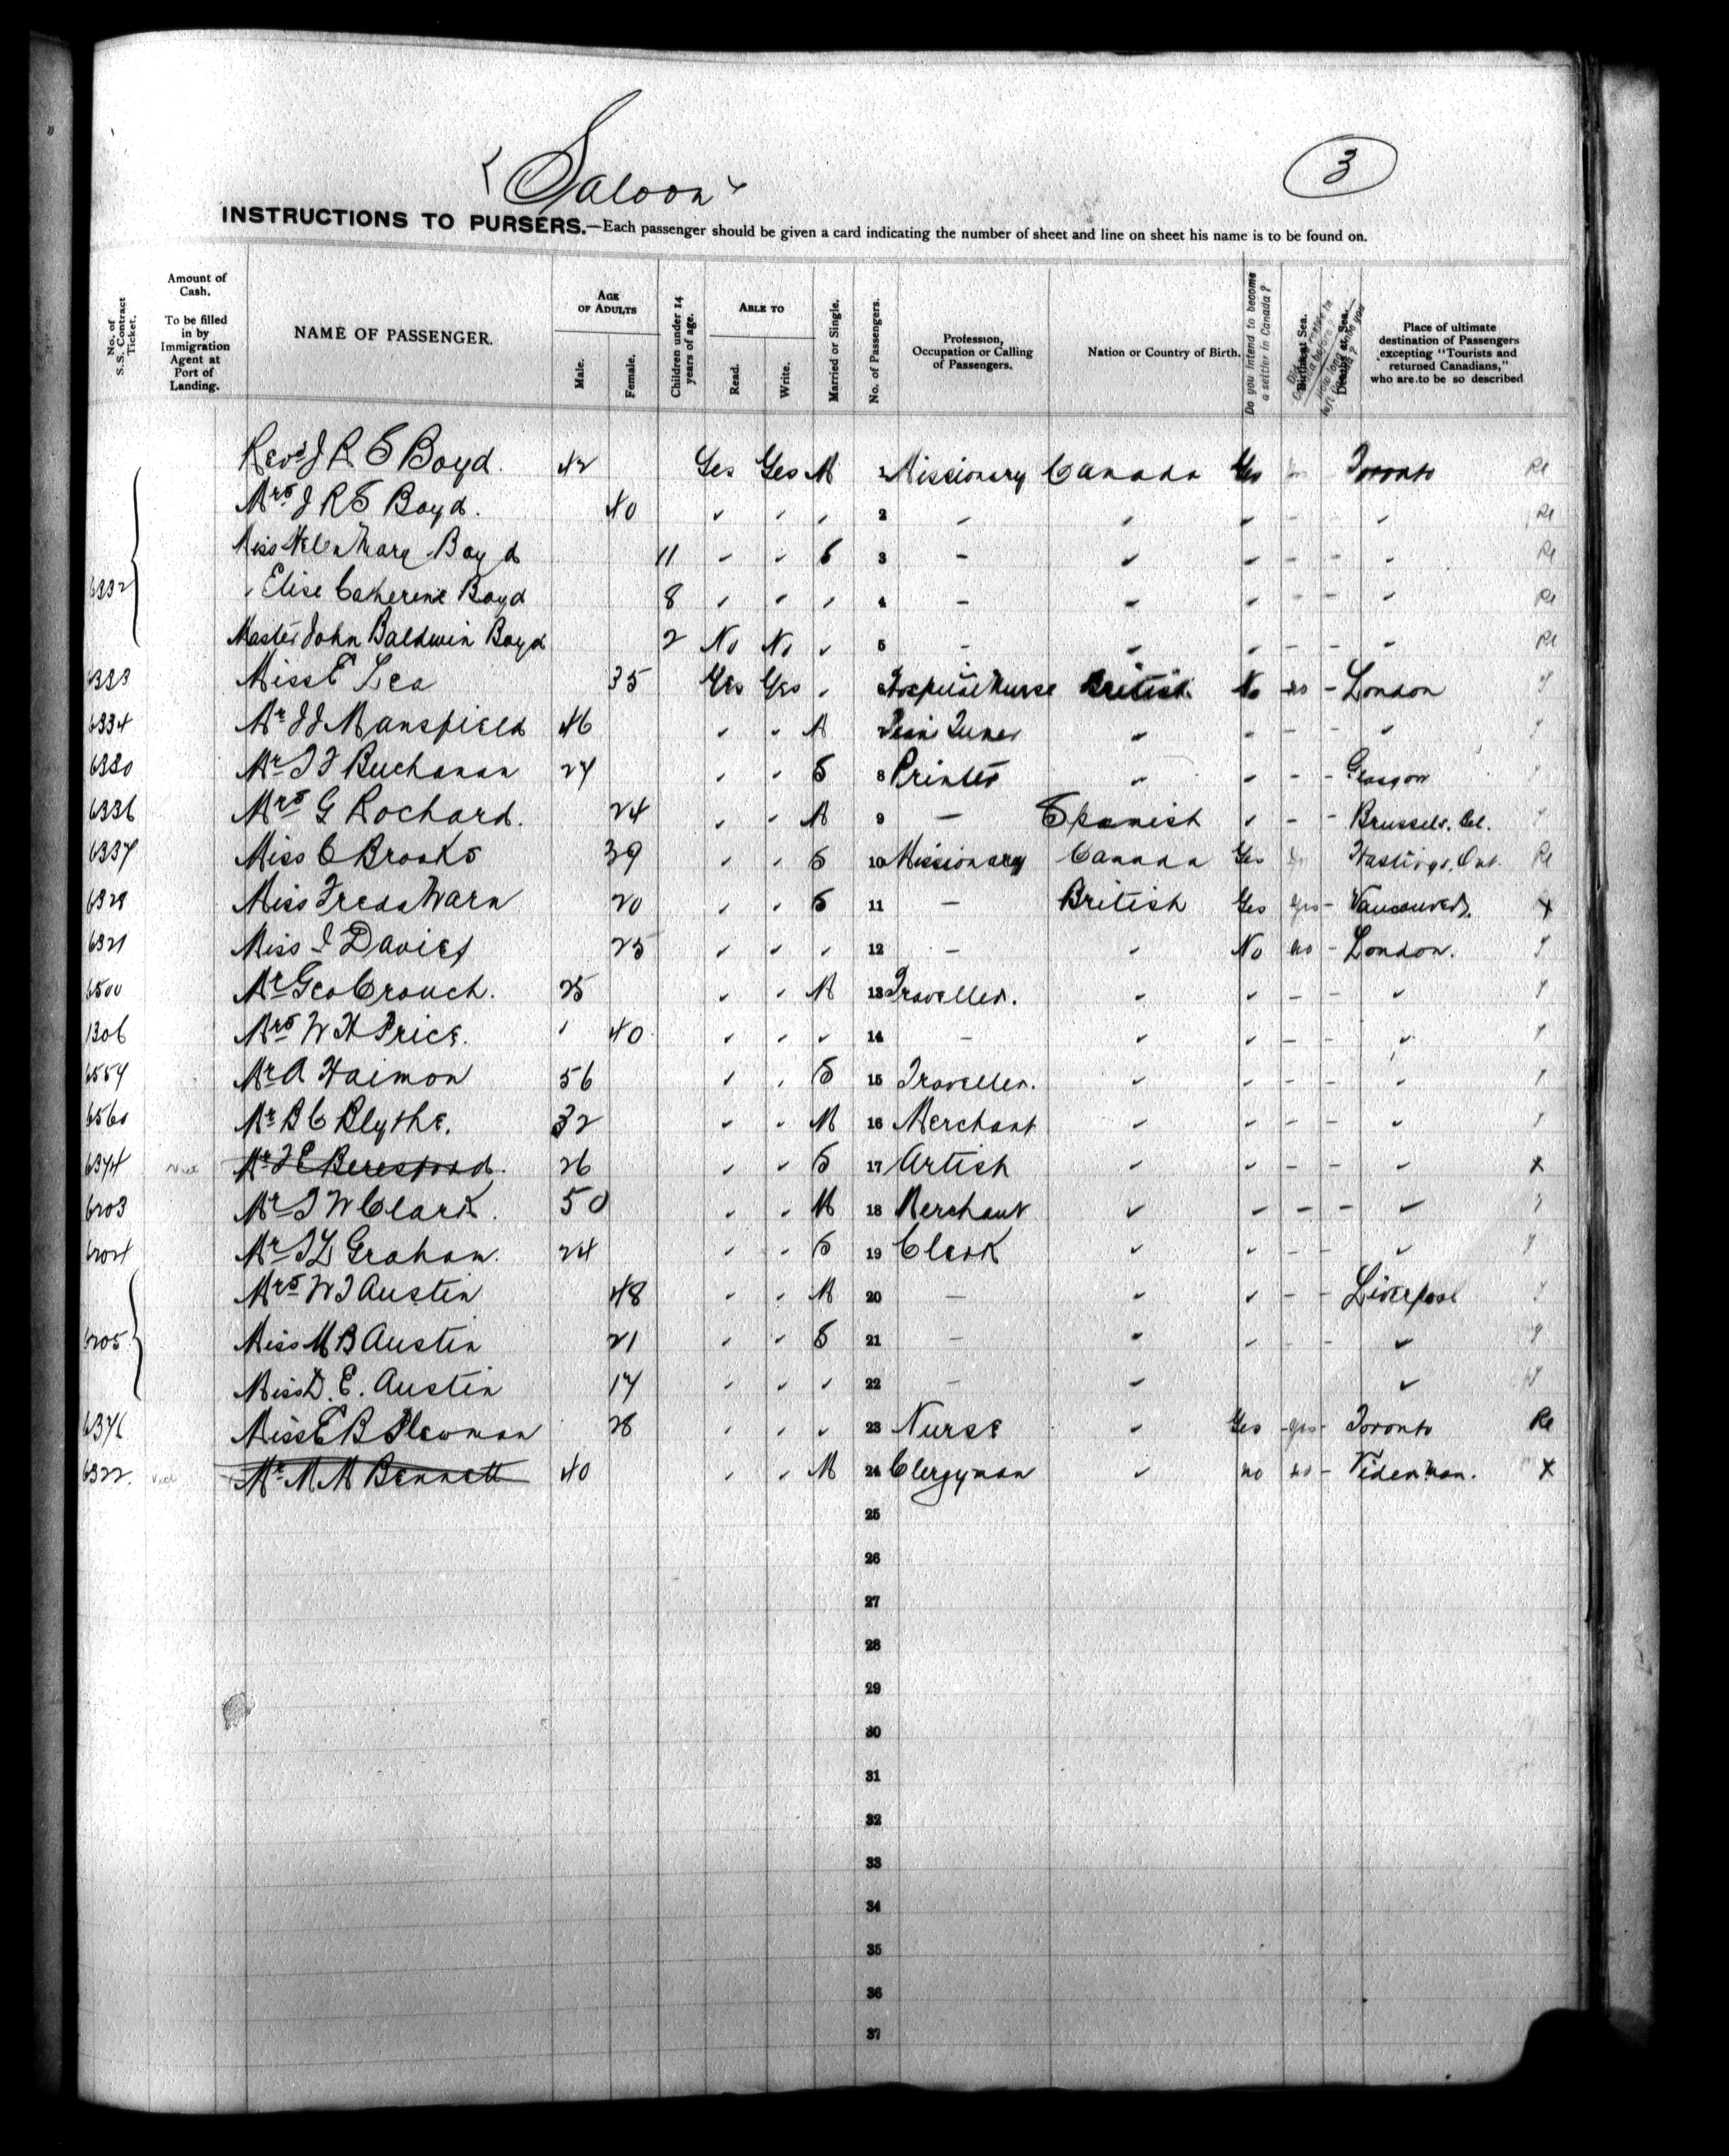 Saloon
3
INSTRUCTIONS TO PURSERS.—Each passenger should be given a card indicating the number of sheet and line on sheet his name is to be found on.
No. of S.S. Contract Ticket.
Amount of Cash. To be filled in by Immigration Agent at Port of Landing.
NAME OF PASSENGER.
AGE OF ADULTS
Male. Female.
Children under 14 years of age.
ABLE TO
Read. Write.
Married or Single.
No. of Passengers.
Profession, Occupation or Calling of Passengers.
Nation or Country of Birth.
Do you intend to become a settler in Canada?
Births at Sea.
Deaths at Sea.
Place of ultimate destination of Passengers excepting "Tourists and returned Canadians," who are to be so described
Revd J R S Boyd. 42 Yes Yes M 1 Missionary Canada Yes Toronto Re
Mrs J R S Boyd. 40 " " " 2 - " " - - " Re
6332 Miss Helen Mary Boyd 11 " " S 3 - " " - - " Re
" Elise Catherine Boyd 8 " " " 4 - " " - - " Re
Master John Baldwin Boyd 2 No No " 5 - " " - - " Re
6333 Miss E Lea 35 Yes Yes " Hospital Nurse British No no - London
6334 Mr J J Mansfield 46 " " M " " - - "
6330 Mr Buchanan 24 " " S 8 Printer " " - - Glasgow
6336 Mrs G Rochard. 24 " " M 9 - Spanish " - - Brussels. Bel.
6337 Miss C Brooks 39 " " S 10 Missionary Canada Yes Hastings, Ont. Re
6329 Miss Freda Warn 20 " " S 11 - British Yes yes - Vancouver. X
6321 Miss I Davies 25 " " " 12 - " No no - London.
6500 Mr Geo Crouch. 25 " " M 13 Traveller. " " - - "
1306 Mrs W H Price. 40 " " " 14 - " " - - "
6554 Mr A Haimon 56 " " S 15 Traveller. " " - - "
6560 Mr B C Blythe. 32 " " M 16 Merchant " " - - "
6344 Mr Beresford. 26 " " S 17 Artist " " - - " X
6203 Mr W Clark. 50 " " M 18 Merchant " " - - "
6204 Mr Graham. 24 " " S 19 Clerk " " - - "
Mrs W J Austin 48 " " M 20 - " " - - Liverpool
6205 Miss M B Austin 21 " " S 21 - " " - - "
Miss D. E. Austin 17 " " " 22 - " "
6346 Miss E B Plewman 28 " " " 23 Nurse " Yes - yes - Toronto Re
6322 Mr M M Bennett 40 " " M 24 Clergyman " no no - X
25
26
27
28
29
30
31
32
33
34
35
36
37